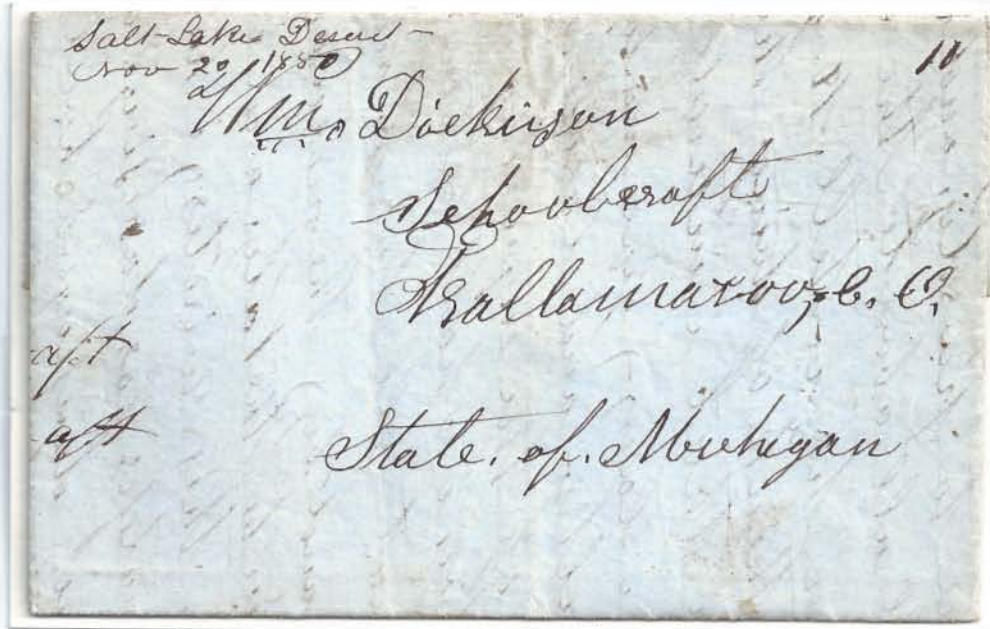 Salt Lake Deseret
Nov 20 1850
10
Wm. Dickinson
Schoolcraft
Kallamazoo, C. O.
aft
aft
State. of. Michigan